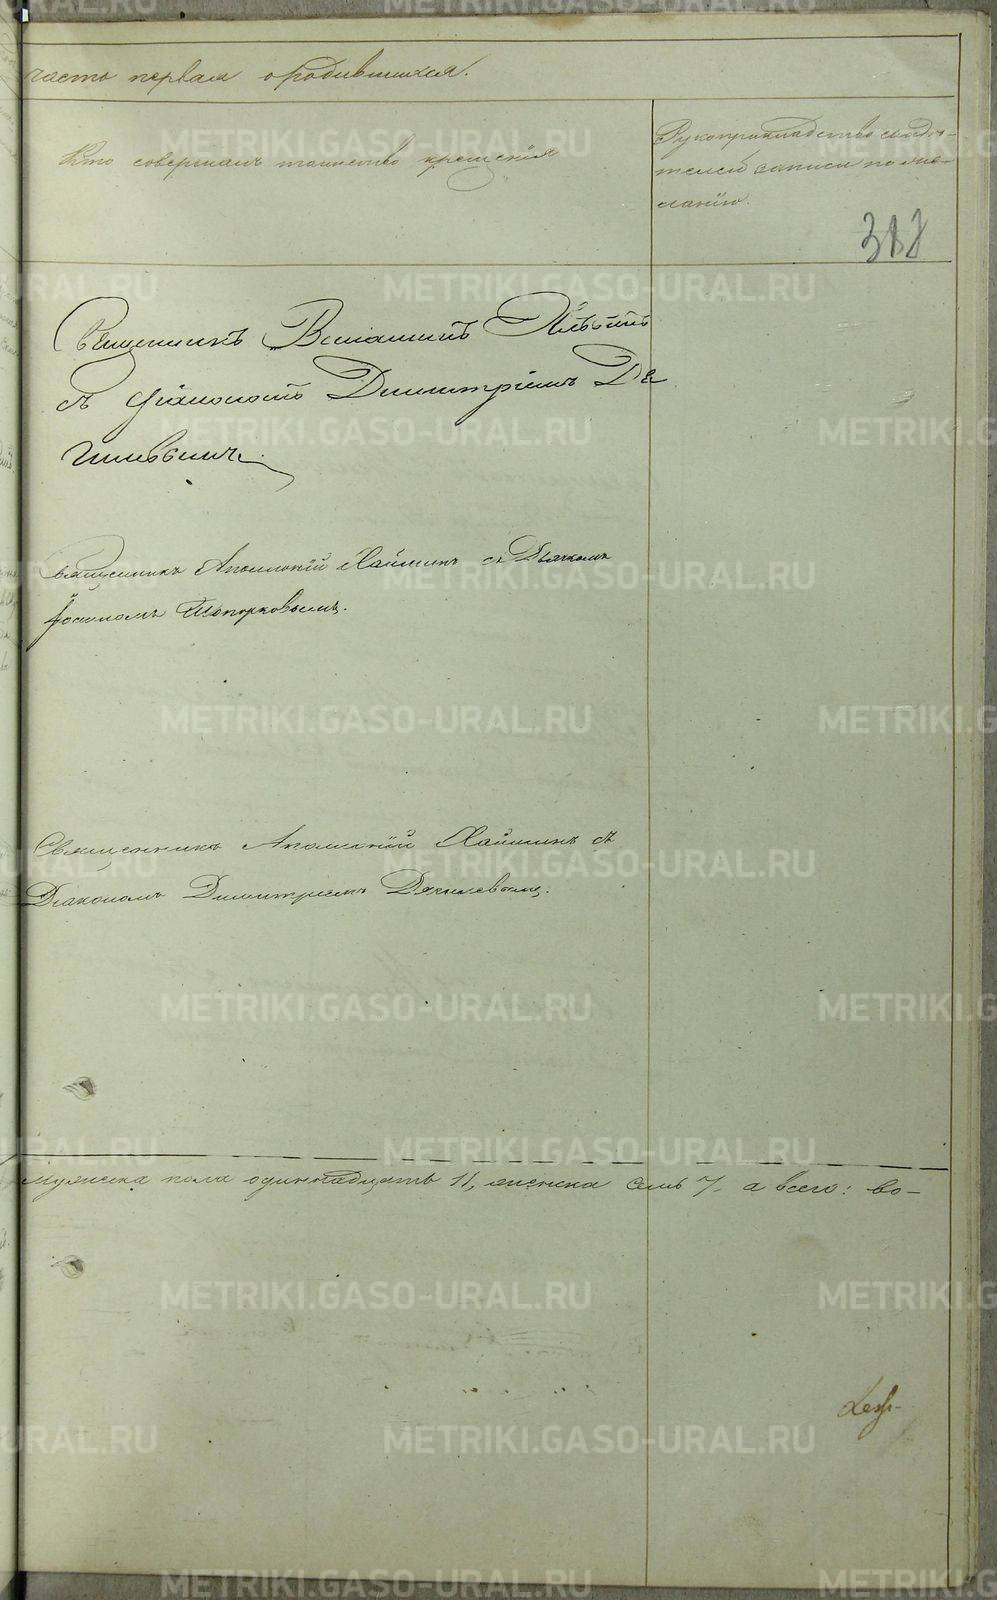 часть первая о родившихся.
Кто совершалъ таинство крещенія
Рукоприкладство свидѣ-
телей записи по же-
ланію.
318
Священникъ Веніаминъ
съ Діакономъ Димитріемъ Дя
гилевымъ.
Священникъ Аполлоній Хаймин съ Дьячкомъ
Іосифомъ Топорковымъ.
Священникъ Аполлоній Хаймин съ
Діакономъ Димитріемъ Дягилевымъ.
мужеска пола одиннадцать 11, женска семь 7. а всего: во-
METRIKI.GASO-URAL.RU